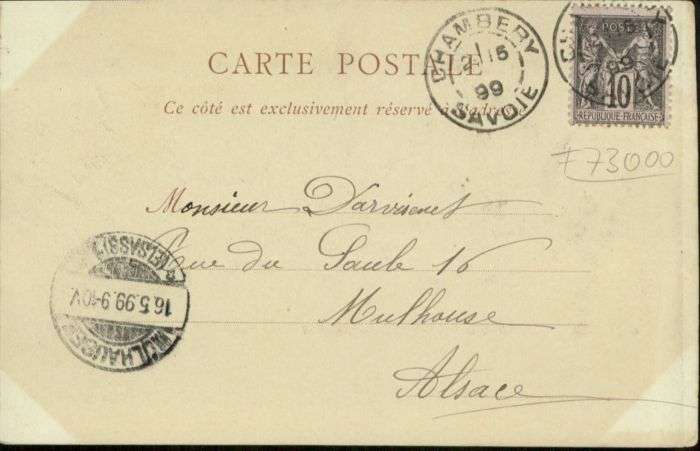 CARTE POSTALE
Ce côté est exclusivement réservé à l'adresse
CHAMBERY
15
99
SAVOIE
POSTES
10
REPUBLIQUE FRANÇAISE
73000
Monsieur Darvisenet
Rue du Saule 16
Mulhouse
Alsace
(ELSASS)
16.5.99.9-10V
MÜLHAUSEN